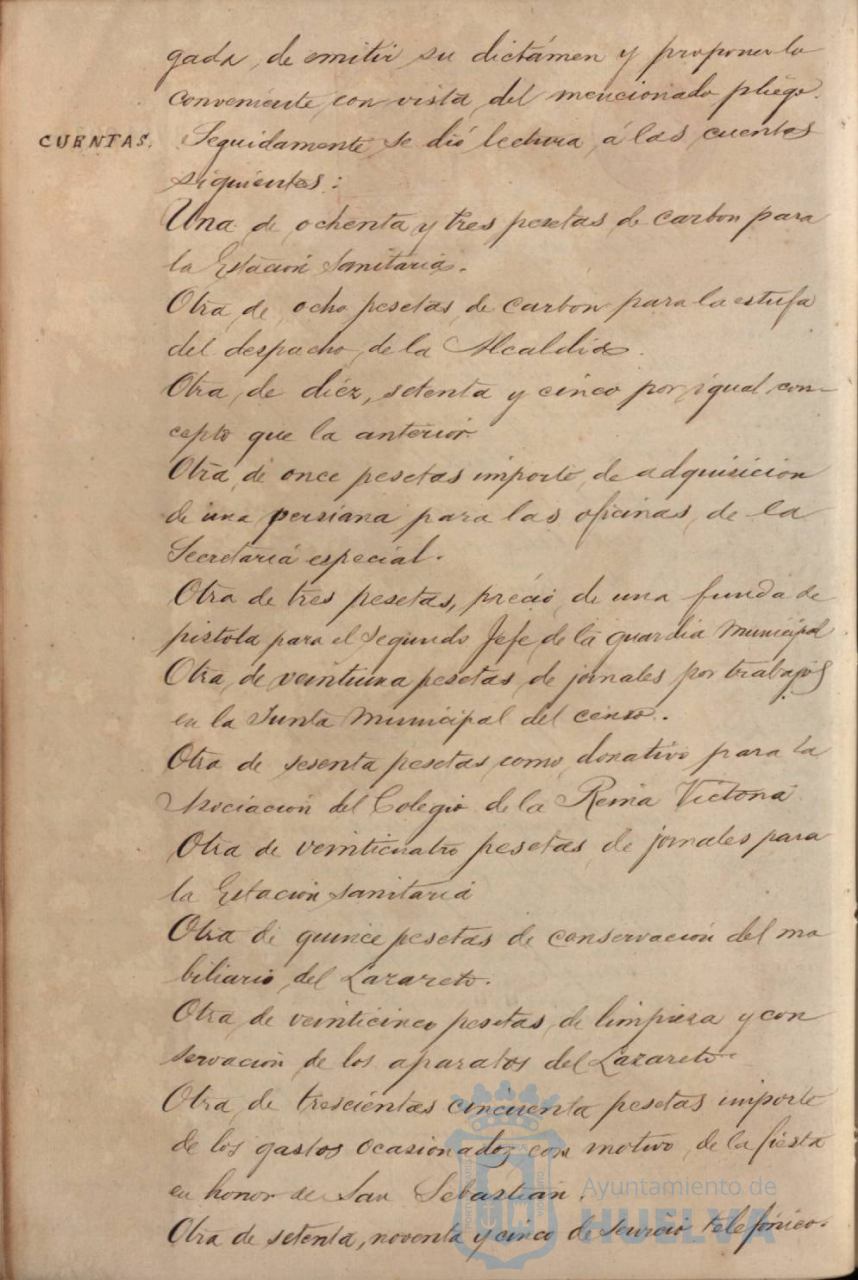 gada, de emitir su dictámen y proponer lo
conveniente, con vista, del mencionado pliego.
CUENTAS. Seguidamente se dió lectura, á las cuentas
siguientes:
Una de ochenta y tres pesetas de carbon para
la Estación Sanitaria.
Otra, de, ocho pesetas, de carbon para la estufa
del despacho, de la Alcaldia.
Otra, de diéz, setenta y cinco por, igual con-
cepto que la anterior
Otra, de once pesetas importe, de adquisicion
de una persiana para las oficinas, de la
Secretaria especial.
Otra de tres pesetas, precio, de una funda de
pistola para el segundo Jefe, de la guardia municipal
Otra, de veintiuna pesetas, de jornales por trabajos
en la Junta Municipal del censo.
Otra de sesenta pesetas, como, donativo para la
Asociación del Colegio de la Reina Victoria
Otra de veinticuatro pesetas de jornales para
la Estación sanitaria
Otra de quince pesetas de conservación del mo
biliario, del Lazareto.
Otra, de veinticinco pesetas, de limpieza y con
servación de los aparatos del Lazareto
Otra, de trescientas cincuenta pesetas importe
de los gastos ocasionados con motivo, de la fiesta
en honor de San Sebastian.
Otra de setenta, noventa y cinco de servicio telefónico.
Ayuntamiento de
HUELVA